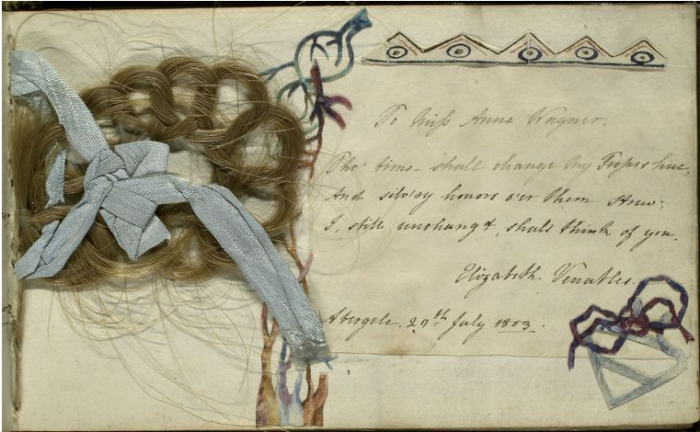 To Miss Anne Wagner.
Tho' time shall change my Tresses hue,
And silv'ry honors o'er them strew,
I, still unchang'd, shall think of you.
Elizabeth Venables.
Abergele. 29th July 1803.